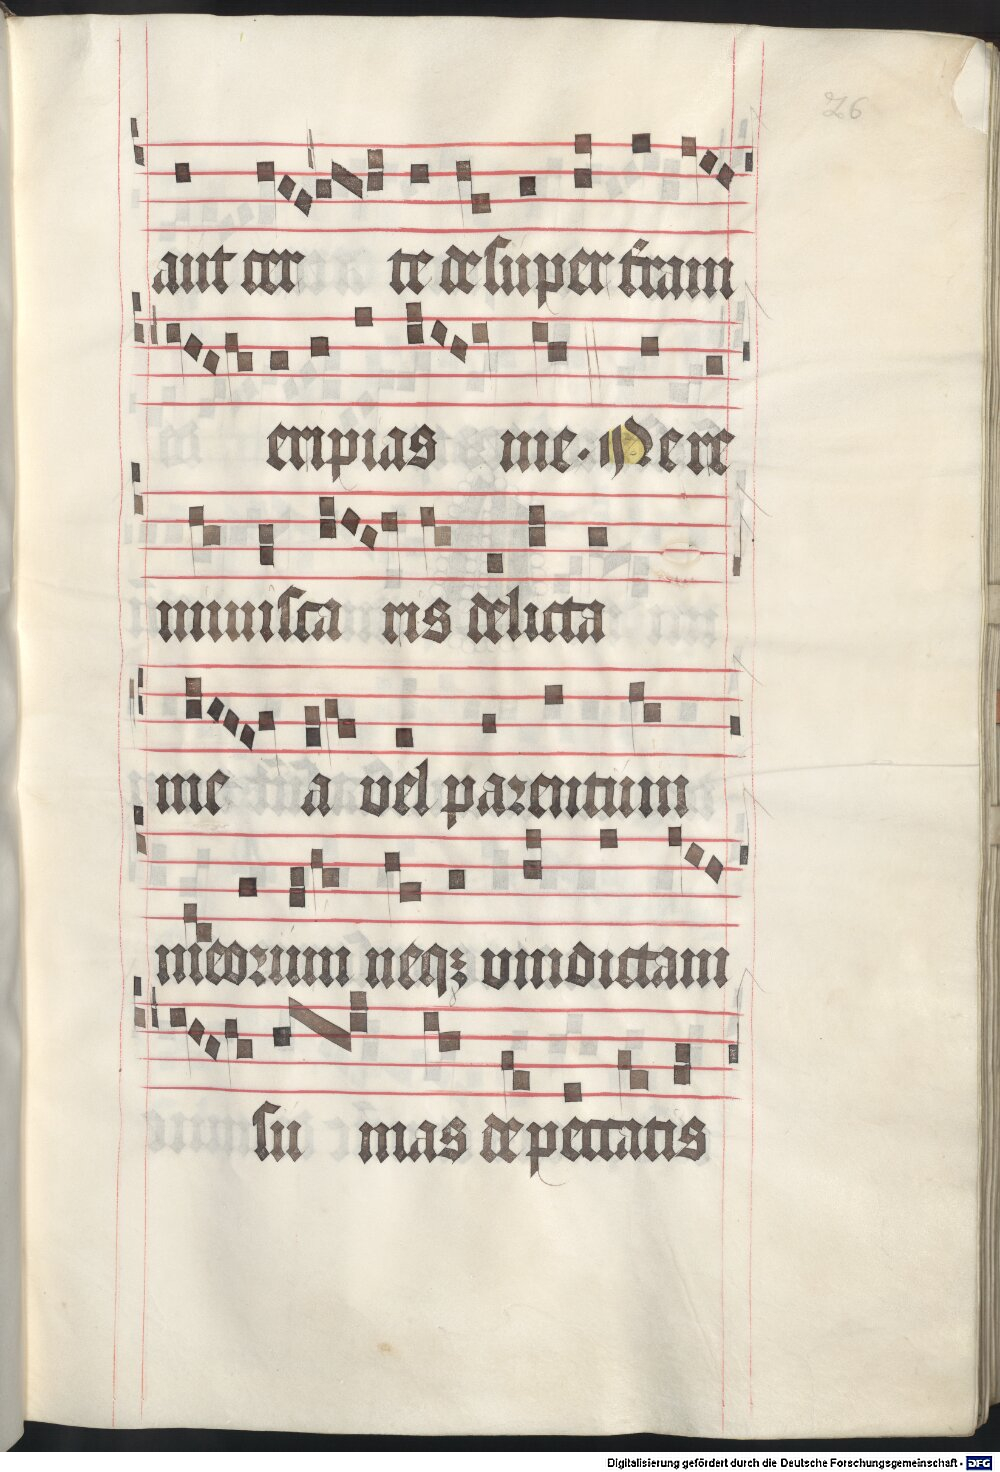 26
aut cer te de super t̄ram
eripias me. Ne re
miniſca ris delicta
me a vel parentum
meorum neqꝫ vindictam
ſu mas de peccatis
Digitalisierung gefördert durch die Deutsche Forschungsgemeinschaft - DFG